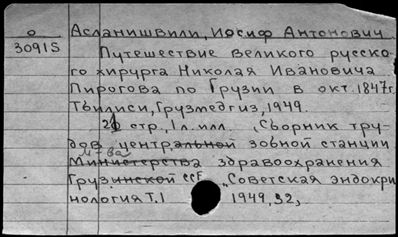 о Асланишвили, Иосиф Антонович.
3091S Путешествие великого русско-
го хирурга Николая Ивановича
Пирогова по Грузии в окт. 1847г.
Тбилиси, Грузмедгиз, 1949.
стр., 1 л. илл. (Сборник тру-
дов центральной зобной станции
Министерства здравоохранения
Грузинской ССР „Советская эндокри
нология Т.1 1949, 32,